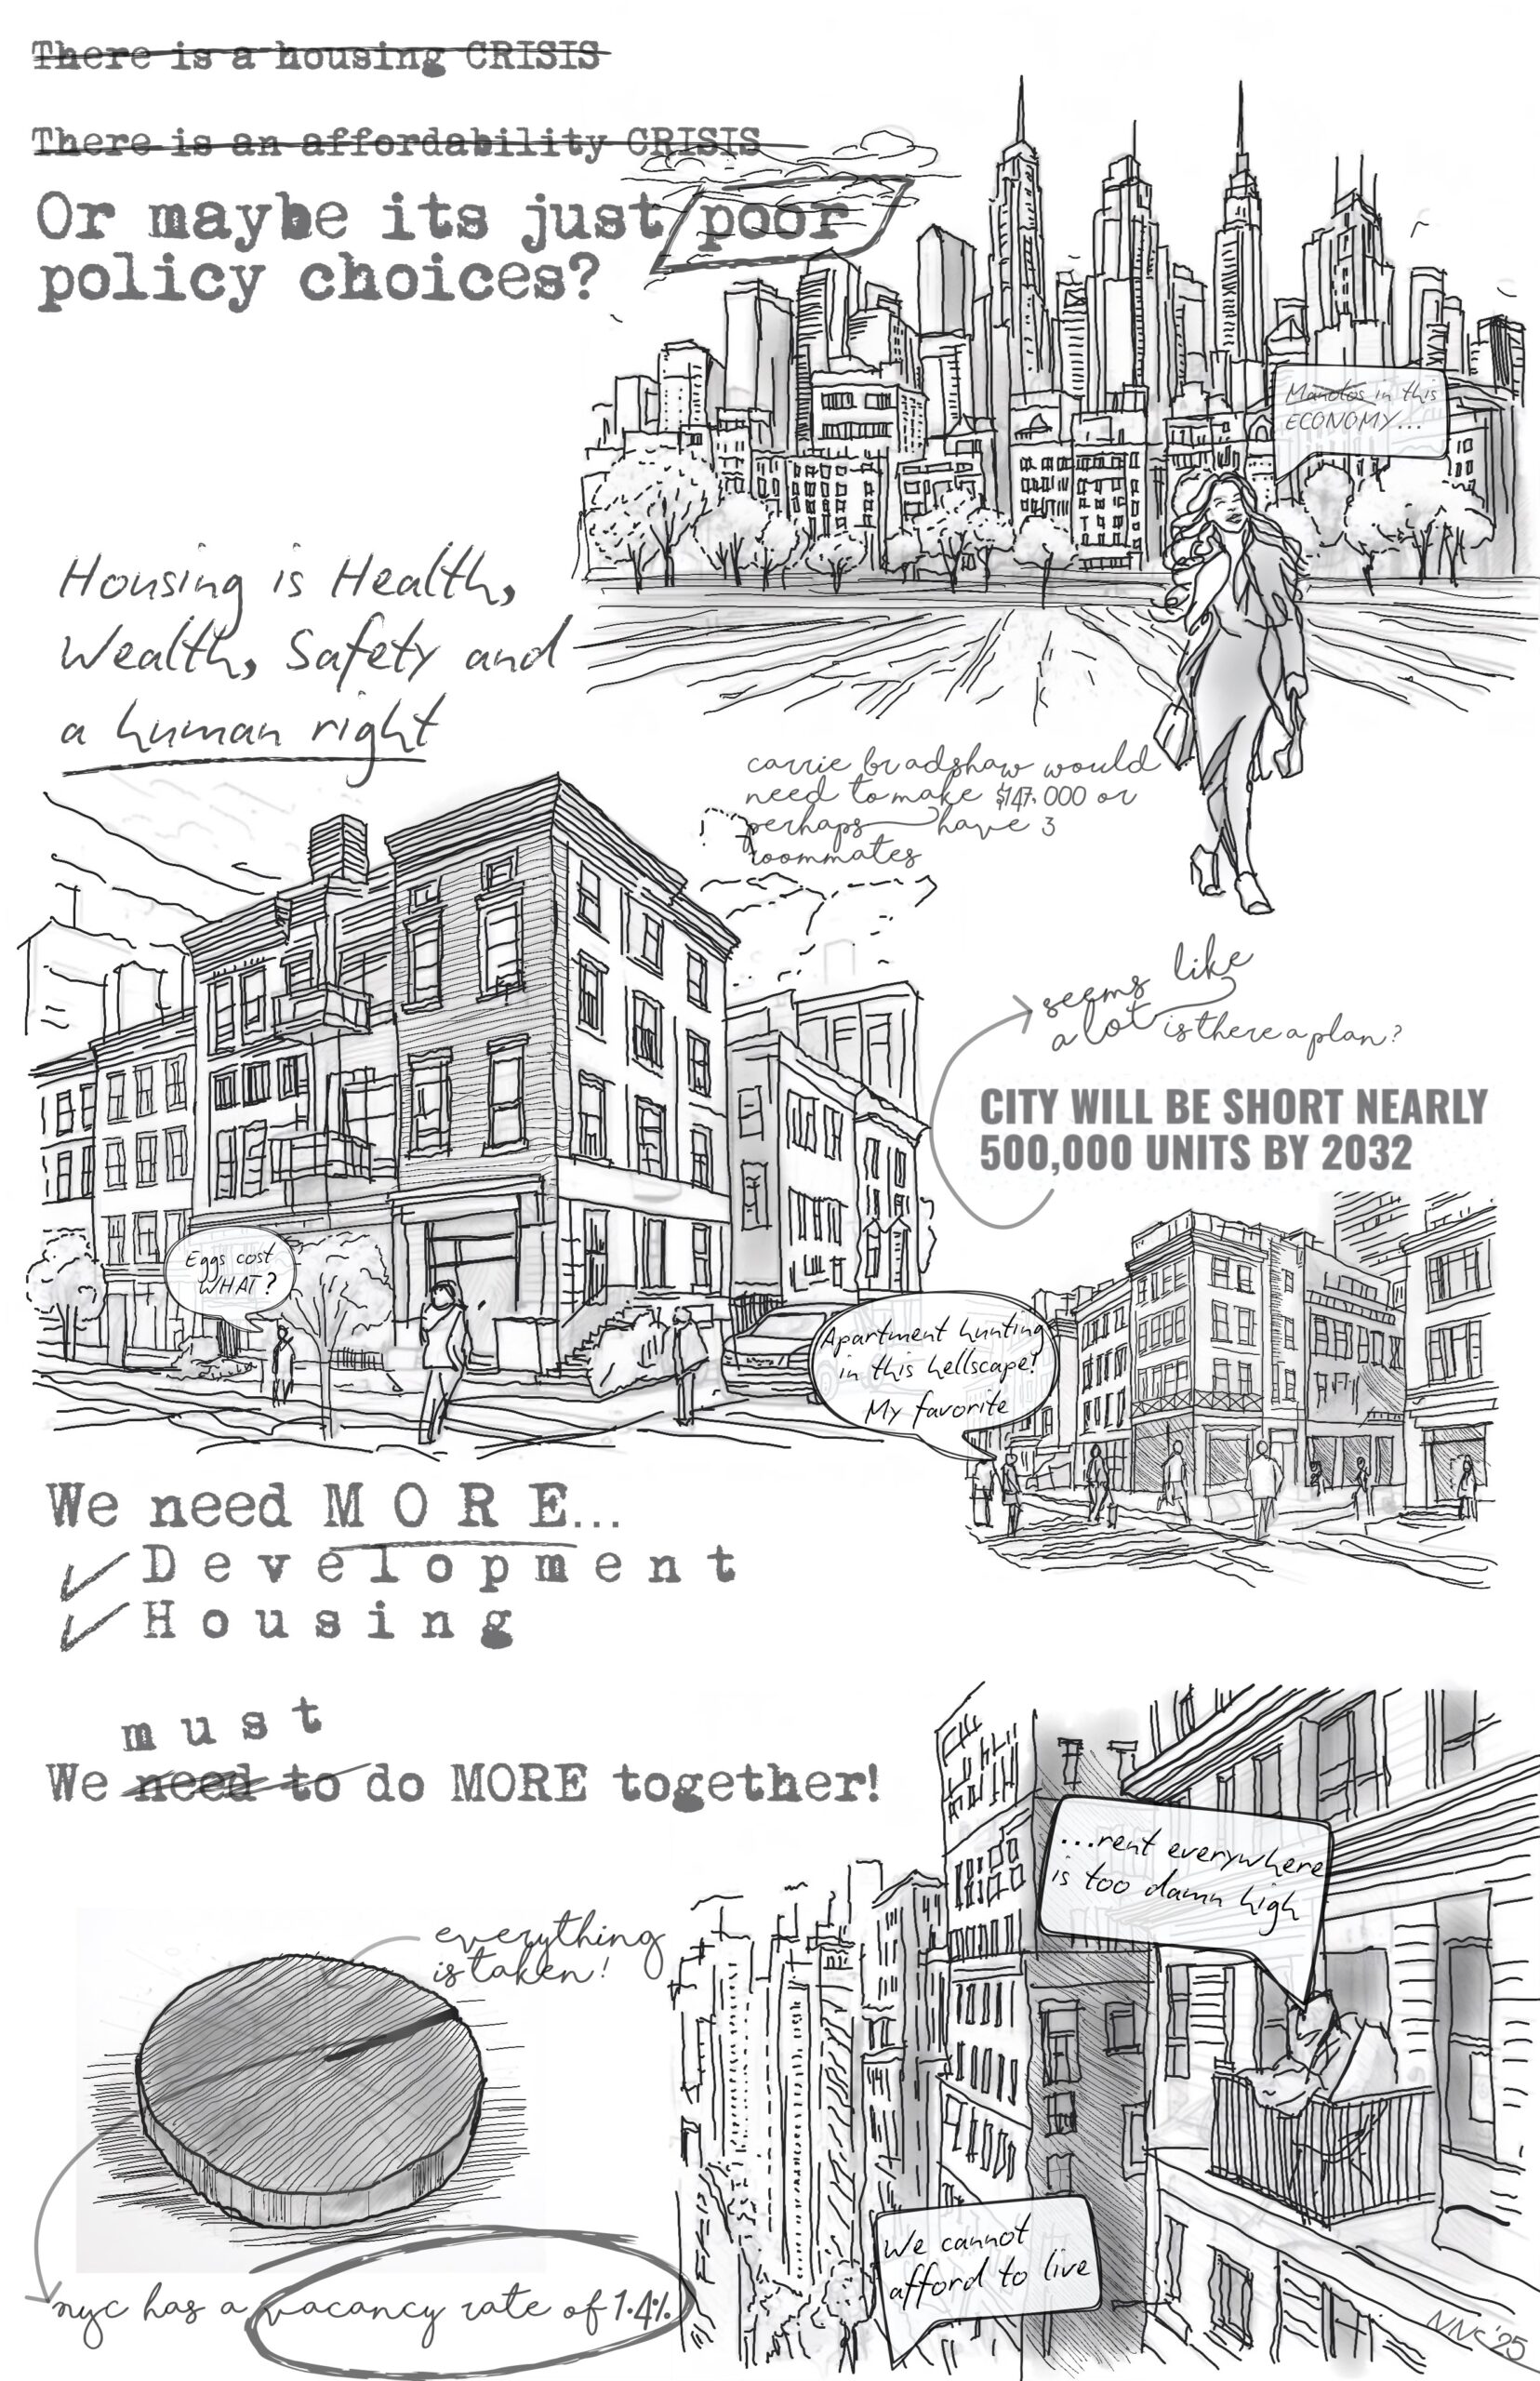 There is a housing CRISIS
There is an affordability CRISIS
Or maybe its just poor
policy choices?
Manolos in this
ECONOMY...
Housing is Health,
Wealth, Safety and
a human right
carrie bradshaw would
need to make $147,000 or
perhaps have 3
roommates
seems like
a lot is there a plan?
CITY WILL BE SHORT NEARLY
500,000 UNITS BY 2032
Eggs cost
WHAT?
Apartment hunting
in this hellscape?
My favorite
We need MORE...
Development
Housing
must
We need to do MORE together!
...rent everywhere
is too damn high
everything
is taken!
We cannot
afford to live
nyc has a vacancy rate of 1.4%
NNC '25